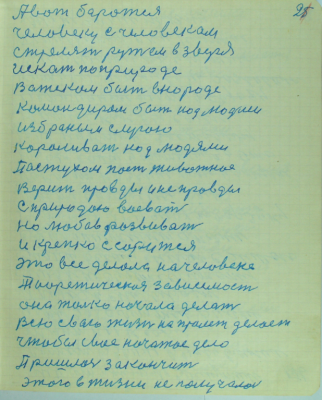 25
Авот баротся
человеку с человекам
стрелят ружем в зверя
искат по природе
Важеком быт в народе
Командирам быт над людми
избраным слугою
Караливат над людями
Пастухом пост животное
Верит правды и не правды
С природаю воеват
Но любов развиват
и крепко ссоритса
это все делола на человека
Теоретическая зависимост
она толко начала делат
Всю сваю жизт не прамт делоет
чтобы свое начатое дело
Пришлос закончит
этого в жизни не получалос